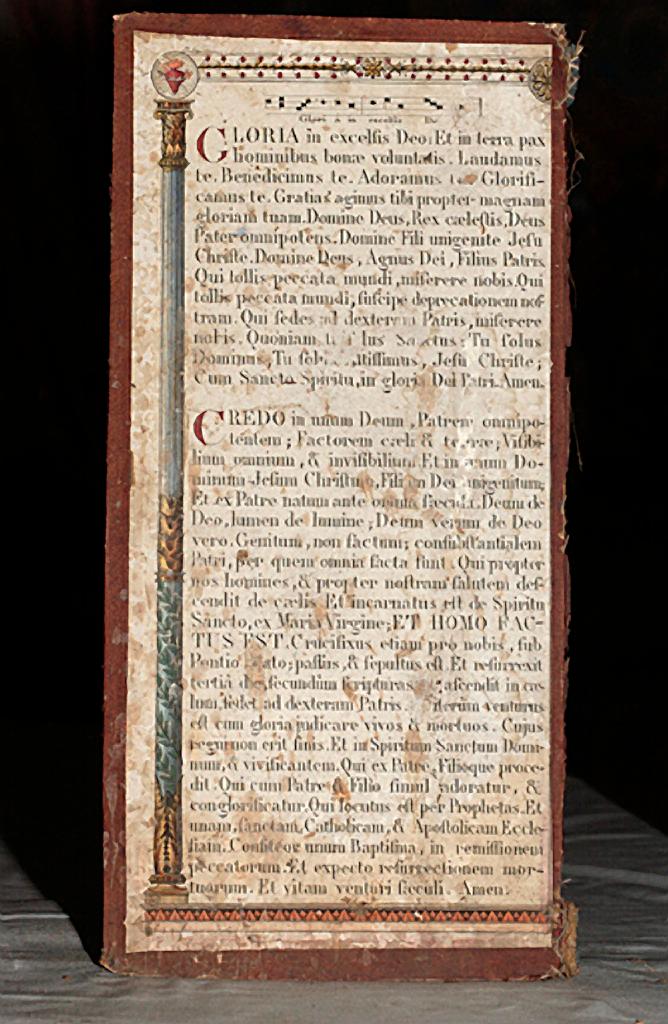 Gloria in excelsis De
GLORIA in excelsis Deo. Et in terra pax
hominibus bonæ voluntatis. Laudamus
te. Benedicimus te. Adoramus te. Glorifi-
camus te. Gratias agimus tibi propter magnam
gloriam tuam. Domine Deus, Rex cælestis, Deus
Pater omnipotens. Domine Fili unigenite Jesu
Christe. Domine Deus, Agnus Dei, Filius Patris
Qui tollis peccata mundi, miserere nobis. Qui
tollis peccata mundi, suscipe deprecationem nos-
tram. Qui sedes ad dexteram Patris, miserere
nobis. Quoniam Sanctus: Tu solus
Dominus, Tu Jesu Christe;
Cum Sancto Spiritu, in gloria Dei Patri. Amen.
CREDO in unum Deum, Patrem omnipo-
tentem; Factorem cæli & terræ; Visibi-
lium omnium, & invisibilium. Et in unum Do-
minum Jesum Christum, Filium Dei unigenitum;
Et ex Patre natum ante omnia sæcula. Deum de
Deo, lumen de lumine, Deum verum de Deo
vero. Genitum, non factum; consubstantialem
Patri, per quem omnia facta sunt. Qui propter
nos homines, & propter nostram salutem des-
cendit de cælis Et incarnatus est de Spiritu
Sancto, ex Maria Virgine; ET HOMO FAC-
TUS EST. Crucifixus etiam pro nobis, sub
Pontio passus, & sepultus est. Et resurrexit
tertiâ die, secundùm scripturas ascendit in cæ-
lum, sedet ad dexteram Patris. iterùm venturus
est cum gloria judicare vivos & mortuos. Cujus
regnum non erit finis. Et in Spiritum Sanctum Domi-
num, & vivificantem. Qui ex Patre, Filioque proce-
dit. Qui cum Patre & Filio simul adoratur, &
conglorificatur. Qui locutus est per Prophetas. Et
unam, sanctam, Catholicam, & Apostolicam Eccle-
siam. Confiteor unum Baptisma, in remissionem
peccatorum. Et expecto resurrectionem mor-
tuorum. Et vitam venturi sæculi. Amen.